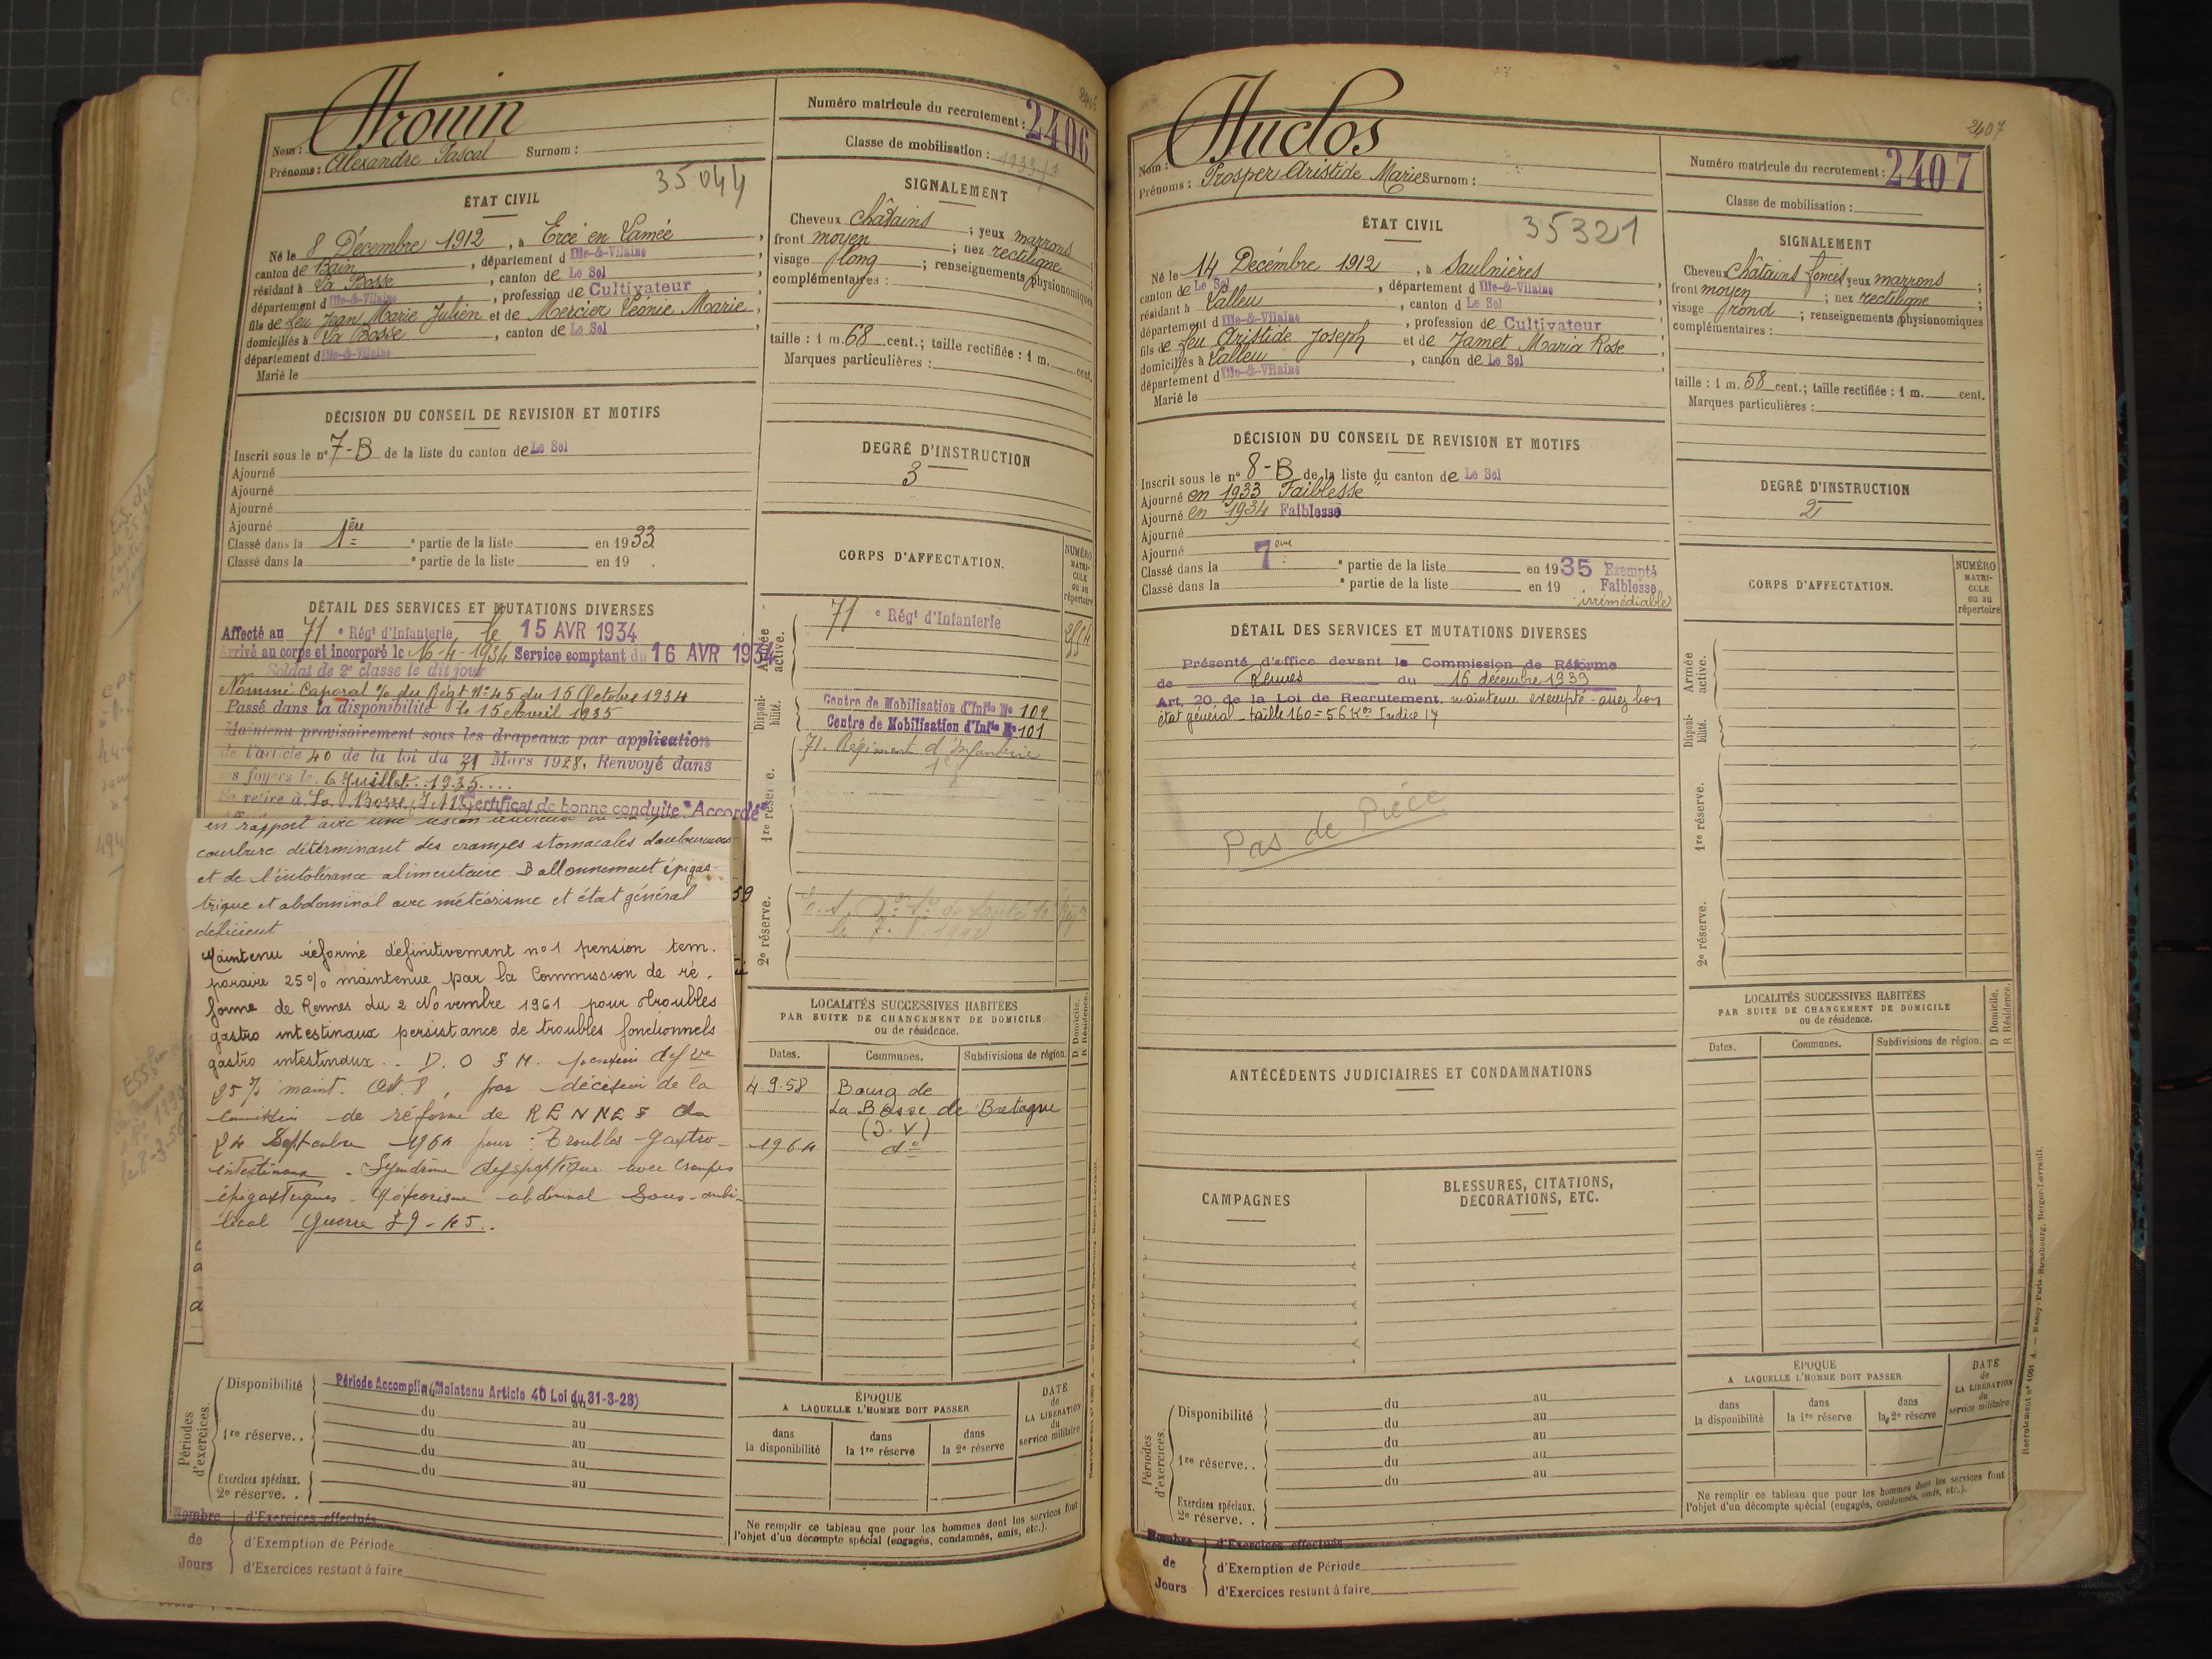 Nom : Drouin
Prénoms : Alexandre Pascal Surnom :
Numéro matricule du recrutement : 2406
Classe de mobilisation : 1933/1
35044
ÉTAT CIVIL
Né le 8 Décembre 1912, à Ercé en Lamée,
canton de Bain, département d Ille-&-Vilaine
résidant à La Bosse, canton de Le Sel
département d Ille-&-Vilaine, profession de Cultivateur
fils de feu Jean Marie Julien et de Mercier Léonie Marie,
domiciliés à La Bosse, canton de Le Sel,
département d Ille-&-Vilaine
Marié le
SIGNALEMENT
Cheveux châtains ; yeux marrons ;
front moyen ; nez rectiligne ;
visage long ; renseignements physionomiques
complémentaires :
taille : 1 m. 68 cent.; taille rectifiée : 1 m. cent.
Marques particulières :
DÉCISION DU CONSEIL DE REVISION ET MOTIFS
Inscrit sous le n° 7-B de la liste du canton de Le Sel
Ajourné
Ajourné
Ajourné
Ajourné
Classé dans la 1ère e partie de la liste en 1933
Classé dans la e partie de la liste en 19 .
DEGRÉ D'INSTRUCTION
3
DÉTAIL DES SERVICES ET MUTATIONS DIVERSES
Affecté au 71 e Régt d'Infanterie le 15 AVR 1934
Arrivé au corps et incorporé le 16-4-1934 Service comptant du 16 AVR 1934
Soldat de 2e classe le dit jour
Nommé Caporal % du Régt N° 45 du 15 Octobre 1934
Passé dans la disponibilité le 15 Avril 1935
Maintenu provisoirement sous les drapeaux par application
de l'article 40 de la loi du 31 Mars 1928. Renvoyé dans
s foyers le 6 Juillet 1935
Se retire à La Bosse, I et V Certificat de bonne conduite "Accordé"
en rapport avec une
courbure déterminant des crampes stomacales douloureuses
et de l'intolérance alimentaire. Ballonnement épigas-
trique et abdominal avec météorisme et état général
déficient
Maintenu réformé définitivement n°1 pension tem.
poraire 25% maintenue par la Commission de ré.
forme de Rennes du 2 Novembre 1961 pour troubles
gastro intestinaux persistance de troubles fonctionnels
gastro intestinaux.
25 % maint. par décision de la
de réforme de RENNES du
24 Septembre 1964 pour : Troubles gastro-
intestinaux. Syndrome dyspeptique avec crampes
épigastriques. Météorisme abdominal sous-ombi-
lical Guerre 39-45..
CORPS D'AFFECTATION.
NUMÉRO MATRICULE ou au répertoire
Armée active.
71 e Régt d'Infanterie
Disponibilité.
Centre de Mobilisation d'Infie N° 102
Centre de Mobilisation d'Infie N° 101
1re réserve.
71. Régiment d'Infanterie
2e réserve.
LOCALITÉS SUCCESSIVES HABITÉES
PAR SUITE DE CHANGEMENT DE DOMICILE
ou de résidence.
D Domicile. R Résidence.
Dates. Communes. Subdivisions de région.
4.9.58 Bourg de
La Bosse de Bretagne
(I.V)
1964 d°
Périodes d'exercices.
Disponibilité Période Accomplie (Maintenu Article 40 Loi du 31-3-28)
du au
1re réserve.. du au
du au
du au
Exercices spéciaux. au
2e réserve. .
Nombre de Jours
d'Exercices effectués
d'Exemption de Période
d'Exercices restant à faire
ÉPOQUE
A LAQUELLE L'HOMME DOIT PASSER
DATE de LA LIBÉRATION du service militaire
dans la disponibilité
dans la 1re réserve
dans la 2e réserve
Ne remplir ce tableau que pour les hommes dont les services font
l'objet d'un décompte spécial (engagés, condamnés, omis, etc.).
2407
Nom : Duclos
Prénoms : Prosper Aristide Marie Surnom :
Numéro matricule du recrutement : 2407
Classe de mobilisation :
35321
ÉTAT CIVIL
Né le 14 Décembre 1912, à Saulnières
canton de Le Sel, département d Ille-&-Vilaine
résidant à Lalleu, canton d Le Sel
département d Ille-&-Vilaine, profession de Cultivateur
fils de feu Aristide Joseph et de Jamet Maria Rose,
domiciliés à Lalleu, canton de Le Sel,
département d Ille-&-Vilaine
Marié le
SIGNALEMENT
Cheveux châtains foncés yeux marrons ;
front moyen ; nez rectiligne ;
visage rond ; renseignements physionomiques
complémentaires :
taille : 1 m. 58 cent.; taille rectifiée : 1 m. cent.
Marques particulières :
DÉCISION DU CONSEIL DE REVISION ET MOTIFS
Inscrit sous le n° 8-B de la liste du canton de Le Sel
Ajourné en 1933 "Faiblesse"
Ajourné en 1934 Faiblesse
Ajourné
Ajourné
Classé dans la 7eme e partie de la liste en 1935 Exempté
Classé dans la e partie de la liste en 19 Faiblesse
irrémédiable
DEGRÉ D'INSTRUCTION
2
DÉTAIL DES SERVICES ET MUTATIONS DIVERSES
Présenté d'office devant la Commission de Réforme
de Rennes du 16 décembre 1939
Art. 20 de la Loi de Recrutement. maintenu exempté - assez bon
état général - taille 160 = 56 Kos Indice 17
Pas de Pièce
CORPS D'AFFECTATION.
NUMÉRO MATRICULE ou au répertoire
Armée active.
Disponibilité.
1re réserve.
2e réserve.
ANTÉCÉDENTS JUDICIAIRES ET CONDAMNATIONS
CAMPAGNES
BLESSURES, CITATIONS,
DÉCORATIONS, ETC.
LOCALITÉS SUCCESSIVES HABITÉES
PAR SUITE DE CHANGEMENT DE DOMICILE
ou de résidence.
D Domicile. R Résidence.
Dates. Communes. Subdivisions de région.
Périodes d'exercices.
Disponibilité du au
du au
1re réserve.. du au
du au
du au
Exercices spéciaux.
2e réserve. .
Nombre de Jours
d'Exercices effectués
d'Exemption de Période
d'Exercices restant à faire
ÉPOQUE
A LAQUELLE L'HOMME DOIT PASSER
DATE de LA LIBÉRATION du service militaire
dans la disponibilité
dans la 1re réserve
dans la 2e réserve
Ne remplir ce tableau que pour les hommes dont les services font
l'objet d'un décompte spécial (engagés, condamnés, omis, etc.).